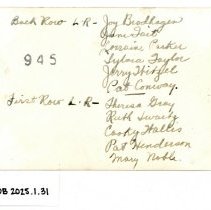 Back Row L-R - Joy Brodhagen
June Tait
Lorraine Parker
Sylvia Taylor
945
Jerry Weitzel
Pat Conway.
First Row L-R - Theresa Gray
Ruth
Cooky Wallis
Pat Henderson
Mary Noble.
OB 2025.1.31